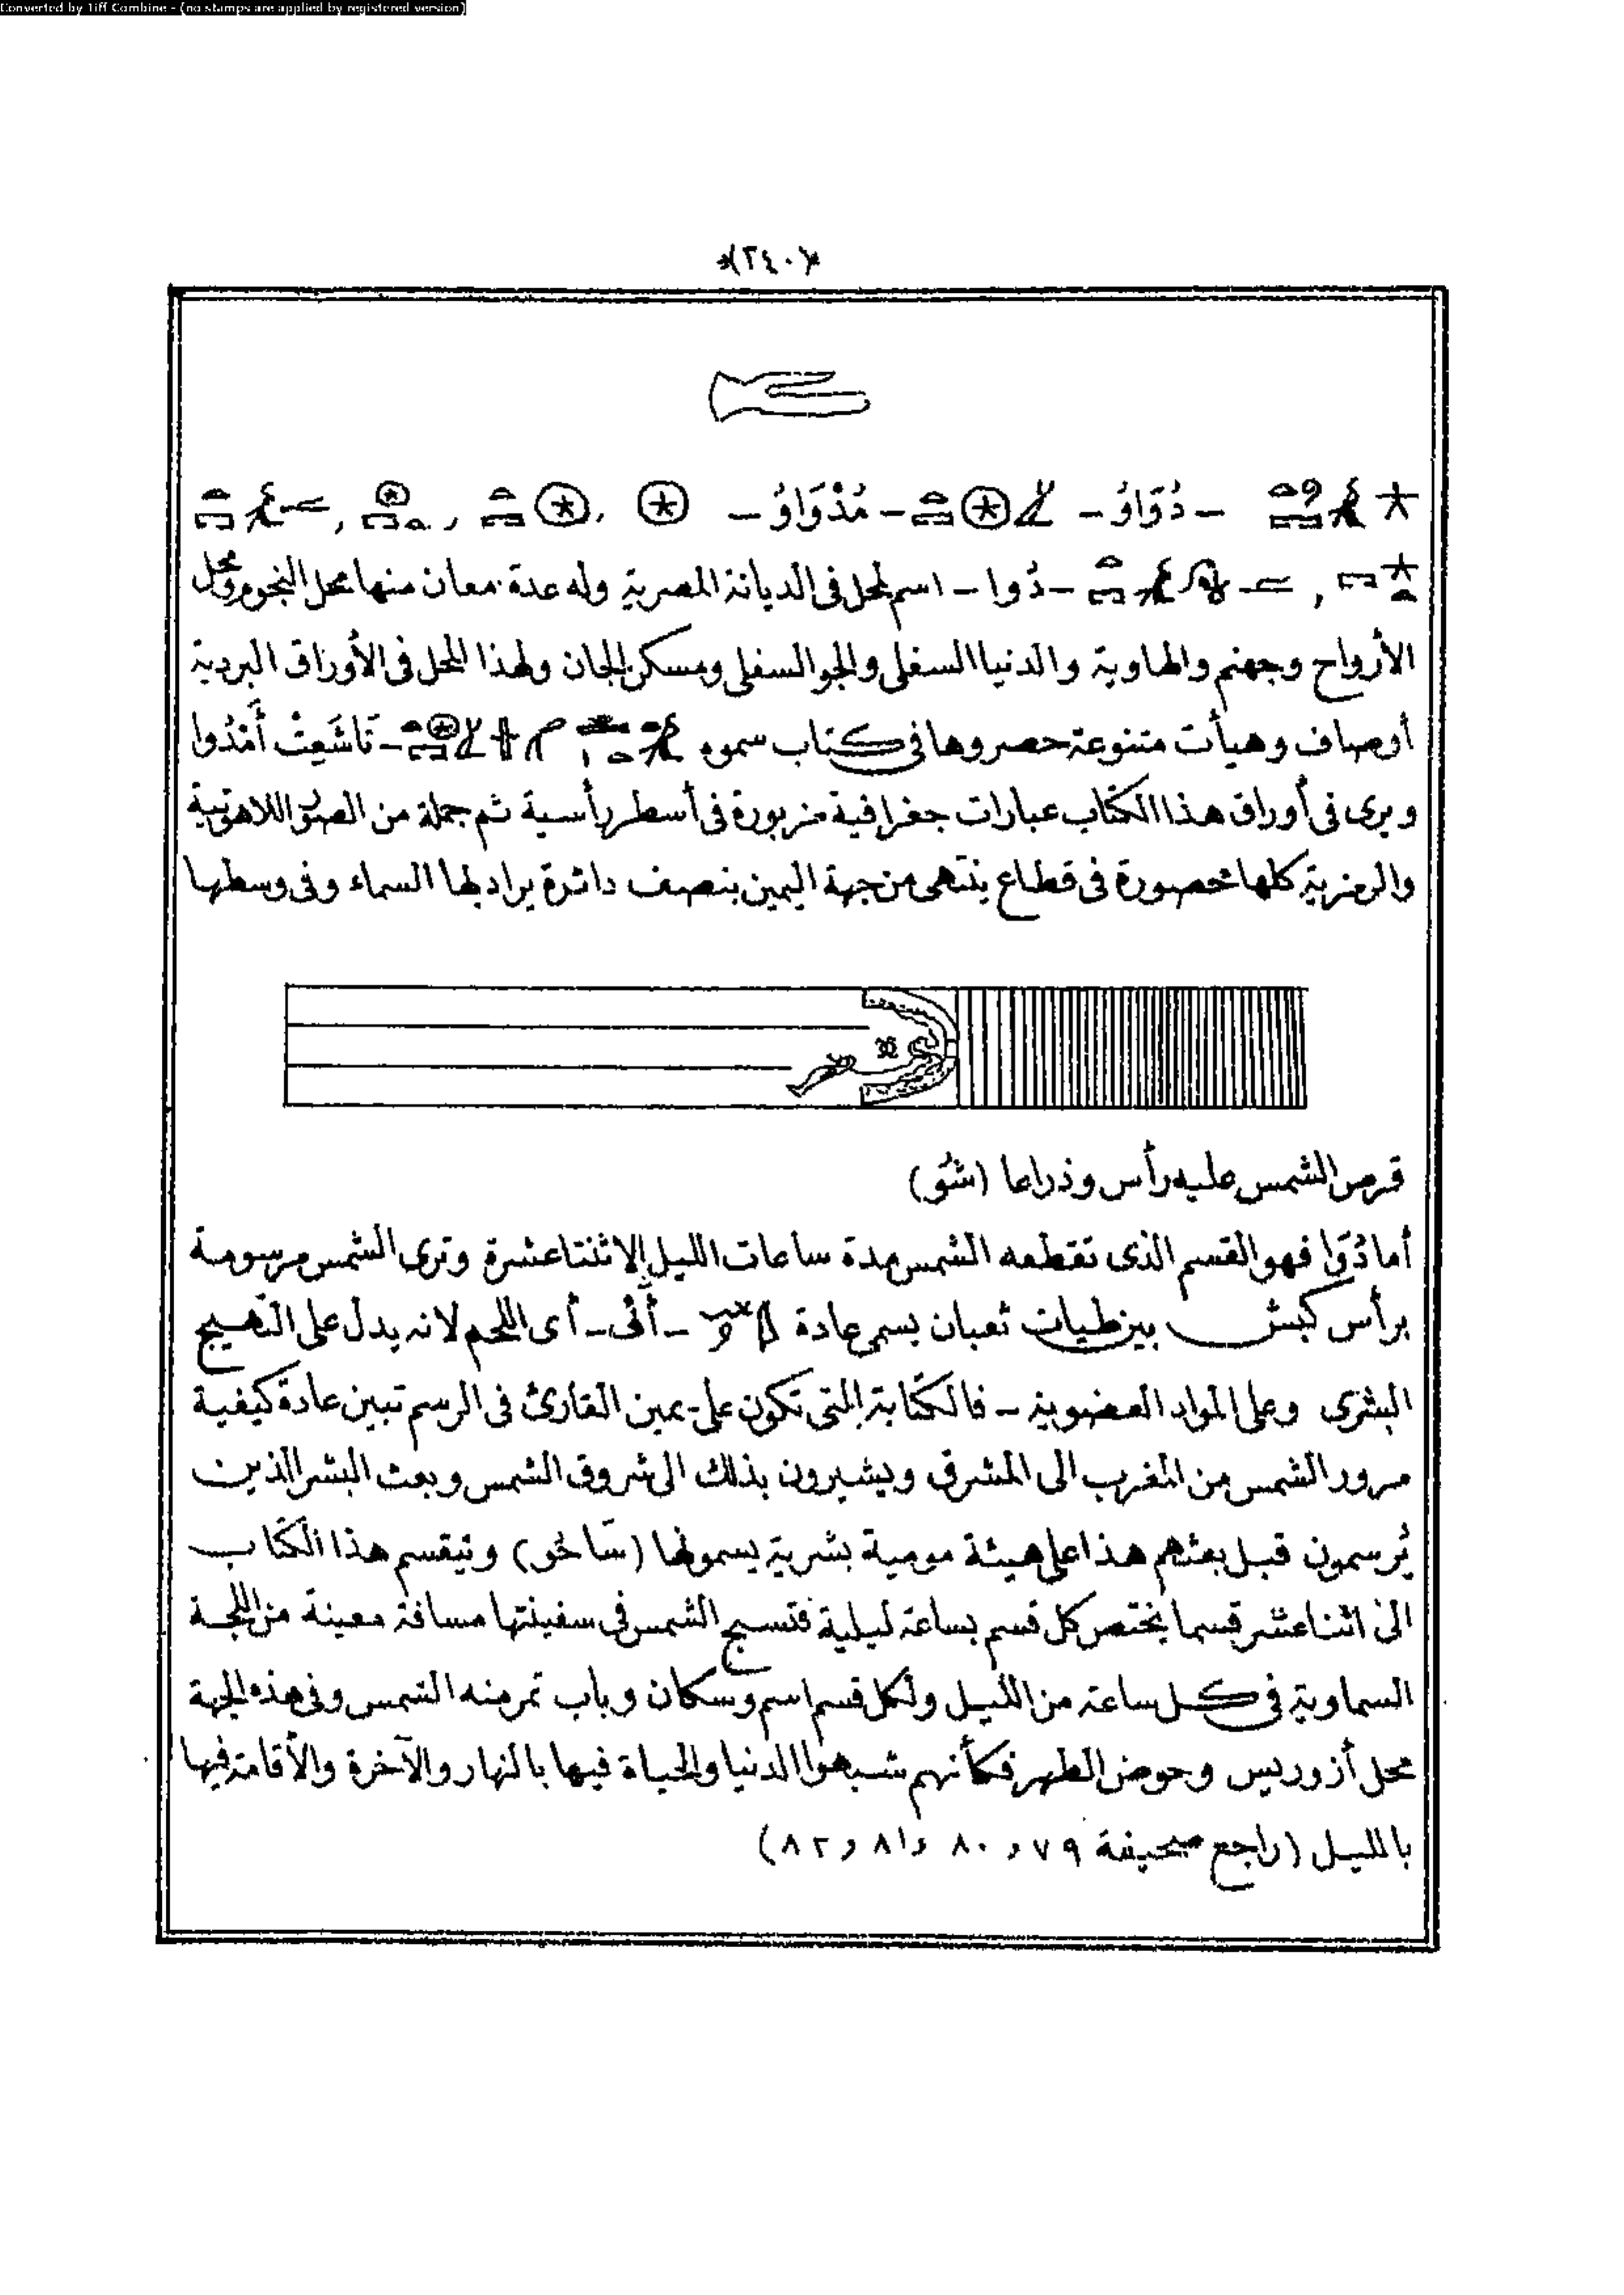 Converted by Tiff Combine - (no stamps are applied by registered version)
*(٢٤٠)*
- دُوَاوُ - - مُدْوَاوُ -
- دُوا - اسم لمحل فى الديانة المصرية وله عدة معان منها محل النجوم ومحل
الأرواح وجهنم والهاوية والدنيا السفلى والجو السفلى ومسكن الجان ولهذا المحل فى الأوراق البردية
أوصاف وهيأت متنوعة حصروها فى كتاب سموه - تَاشَعِتْ أَمْدُوا
ويرى فى أوراق هذا الكتاب عبارات جغرافية مزبورة فى أسطر رأسية ثم جملة من الصور اللاهوتية
والرمزية كلها محصورة فى قطاع ينتهى من جهة اليمين بنصف دائرة يراد بها السماء وفى وسطها
قرص الشمس عليه رأس وذراعا (شُو)
أما دُوَا فهو القسم الذى تقطعه الشمس مدة ساعات الليل الاثنتا عشرة وترى الشمس مرسومة
برأس كبش بين طيات ثعبان يسمى عادة - أَنْى - أى اللحم لانه يدل على التهييج
البشرى وعلى المواد العضوية - فالكتابة التى تكون على يمين القارئ فى الرسم تبين عادة كيفية
مرور الشمس من المغرب الى المشرق ويشيرون بذلك الى شروق الشمس وبعث البشر الذين
يُرسمون قبل بعثهم هذا على هيئة مومية بشرية يسمونها (سَاخُو) وينقسم هذا الكتاب
الى اثنا عشر قسما يختص كل قسم بساعة ليلية فتسبح الشمس فى سفينتها مسافة معينة من اللجة
السماوية فى كل ساعة من الليل ولكل قسم اسم وسكان وباب تمر منه الشمس وفى هذه الجهة
محل أزوريس وحوض الطهر فكأنهم شبهوا الدنيا والحياة فيها بالنهار والآخرة والأقامة فيها
بالليل (راجع صحيفة ٧٩ و ٨٠ و ٨١ و ٨٢)